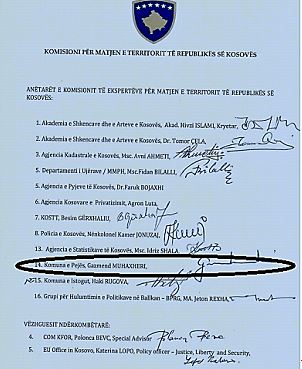 KOMISIONI PËR MATJEN E TERRITORIT TË REPUBLIKËS SË KOSOVËS
ANËTARËT E KOMISIONIT TË EKSPERTËVE PËR MATJEN E TERRITORIT TË REPUBLIKËS SË
KOSOVËS:
1. Akademia e Shkencave dhe e Arteve e Kosovës, Akad. Hivzi ISLAMI, Kryetar,
2. Akademia e Shkencave dhe e Arteve e Kosovës, Dr. Tomor ÇELA,
3. Agjencia Kadastrale e Kosovës, Msc. Avni AHMETI,
5. Departamenti i Ujërave / MMPH, Msc.Fidan BILALLI,
5. Agjencia e Pyjeve të Kosovës, Dr.Faruk BOJAXHI
6. Agjencia Kosovare e Privatizimit, Agron Luta,
7. KOSTT, Besim GËRXHALIU,
8. Policia e Kosovës, Nënkolonel Kamer JONUZAJ,
13. Agjencia e Statistikave të Kosovës, Msc. Idriz SHALA,
14. Komuna e Pejës, Gazmend MUHAXHERI,
15. Komuna e Istogut, Haki RUGOVA,
16. Grupi për Hulumtimin e Politikave në Ballkan – BPRG, MA, Jeton REXHA,
VËZHGUESIT NDËRKOMBËTARË:
4. COM KFOR, Polonca BEVC, Special Advisor
5. EU Office in Kosovo, Katerina LOPO, Policy officer – Justice, Liberty and Security,